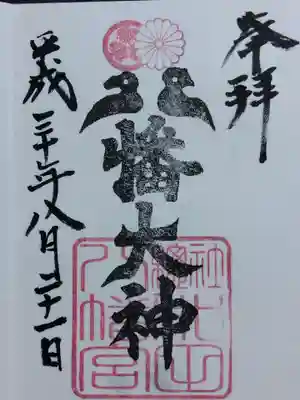 奉拝
八幡大神
平成三十年八月二十一日